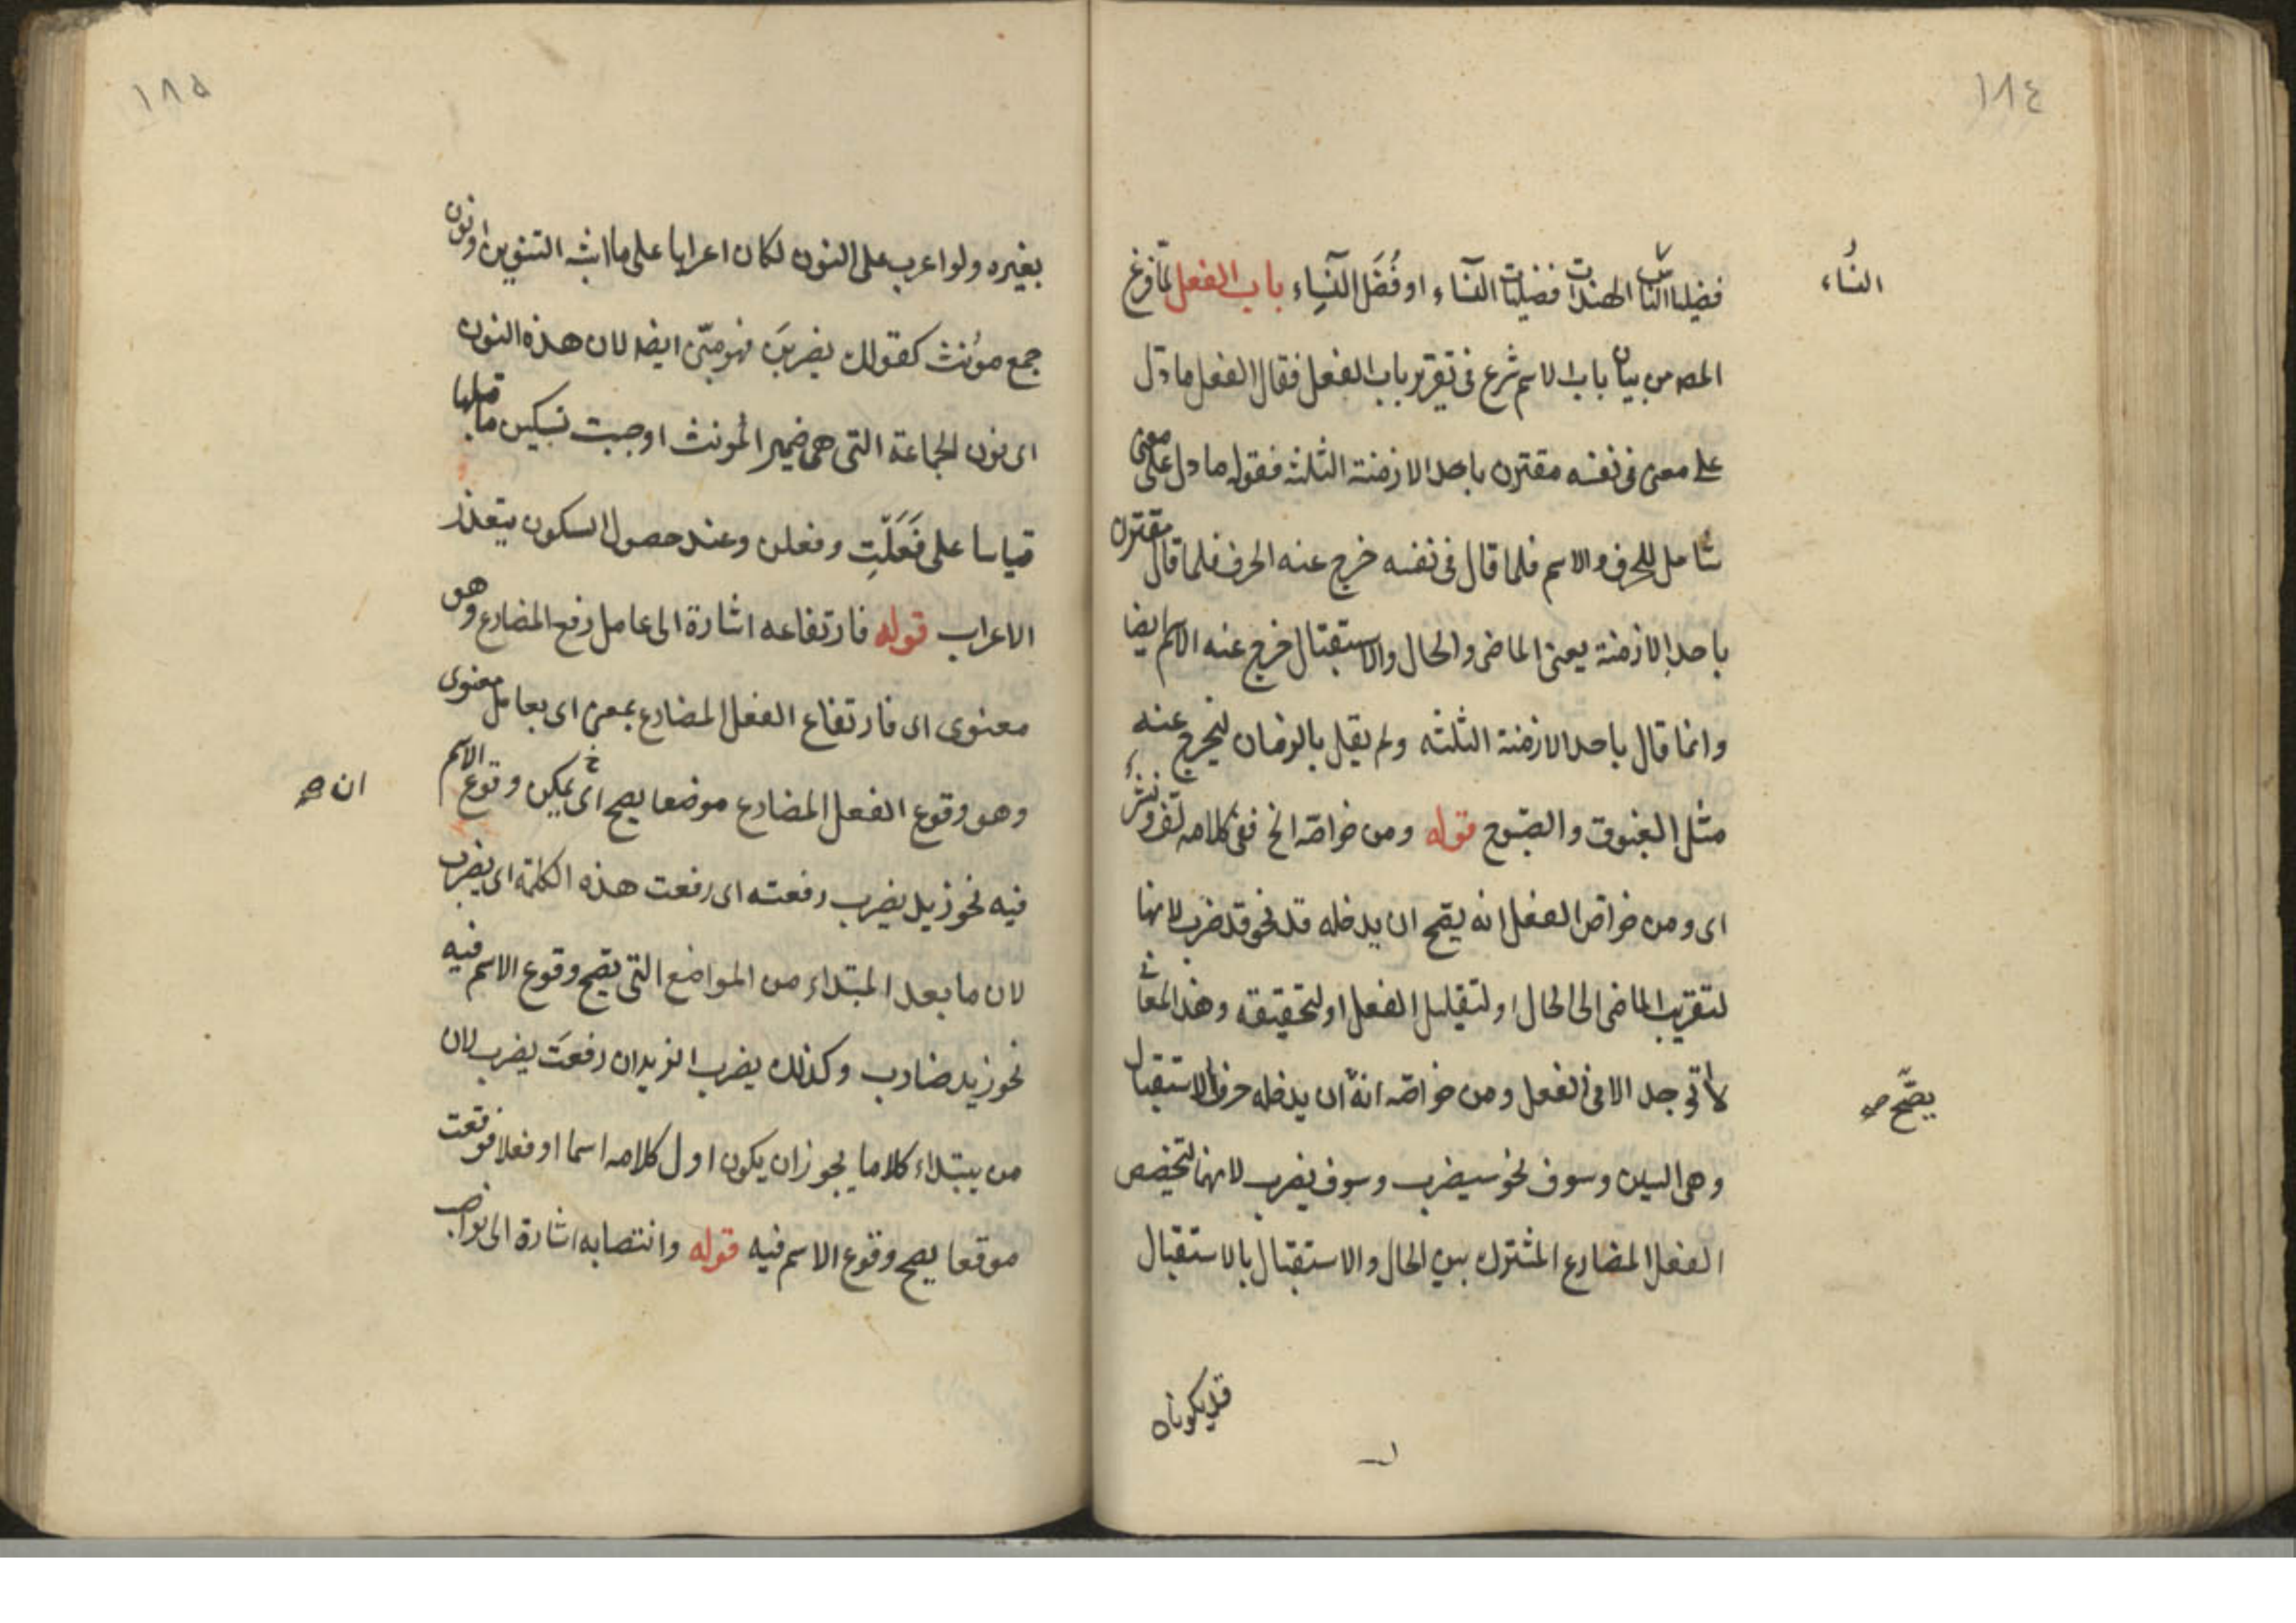 ١٨٤
النساء
فضليا النساء الهندات فضليات النساء او فُضَل النساء باب الفعل لمّا فرغ
المصـ من بيان باب الاسم شرع فى تقرير باب الفعل فقال الفعل ما دل
على معنى فى نفسه مقترن باحد الازمنة الثلثه فقوله ما دل على معنى
شامل للحرف والاسم فلما قال فى نفسه خرج عنه الحرف فلما قال مقترن
باحد الازمنة يعنى الماضى والحال والاستقبال خرج عنه الاسم ايضا
وانما قال باحد الازمنة الثلثه ولم يقل بالزمان ليخرج عنه
مثل الغبوق والصبوح قوله ومن خواصّه الخ ففى كلامه لفّ ونشر
اى ومن خواصّ الفعل انه يصّح ان يدخله قد نحو قد ضرب لانها
لتقريب الماضى الى الحال او لتقليل الفعل او لتحقيقه وهذا المعانى
لا توجد الا فى الفعل ومن خواصّه انهّ ان يدخله حرفا الاستقبال
يصّح صح
وهى السين وسوف نحو سيضرب وسوف يضرب لانهما لتخصيص
الفعل المضارع المشترك بين الحال والاستقبال بالاستقبال
قد يكونان
١٨٥
بغيره ولو اعرب على النون لكان اعرابا على ما اشبه التنوين او نون
جمع موُنث كقولك يضربنَ فهو مبنّى ايضا لان هذه النون
اى نون الجماعة التى هى ضمير الموُنث اوجبت تسكين ما قبلها
قياسا على فَعَلَتْ وفعلن وعند حصول السكون يتعذر
الاعراب قوله فارتفاعه اشارة الى عامل رفع المضارع وهو
معنوى اى فارتفاع الفعل المضارع بمعنى اى بعامل معنوى
وهو وقوع الفعل المضارع موضعا يصح اى يمكن وقوع الاسم
ان صح
فيه نحو زيد يضرب رفعته اى رفعت هذه الكلمة اى يضرب
لان ما بعد المبتداء من المواضع التى يصّح وقوع الاسم فيه
نحو زيد ضارب وكذلك يضرب الزيدان رفعتَ يضرب لان
من يبتداء كلاما يجوز ان يكون اول كلامه اسما او فعلا فوقعت
موقعا يصح وقوع الاسم فيه قوله وانتصابه اشارة الى نواصب